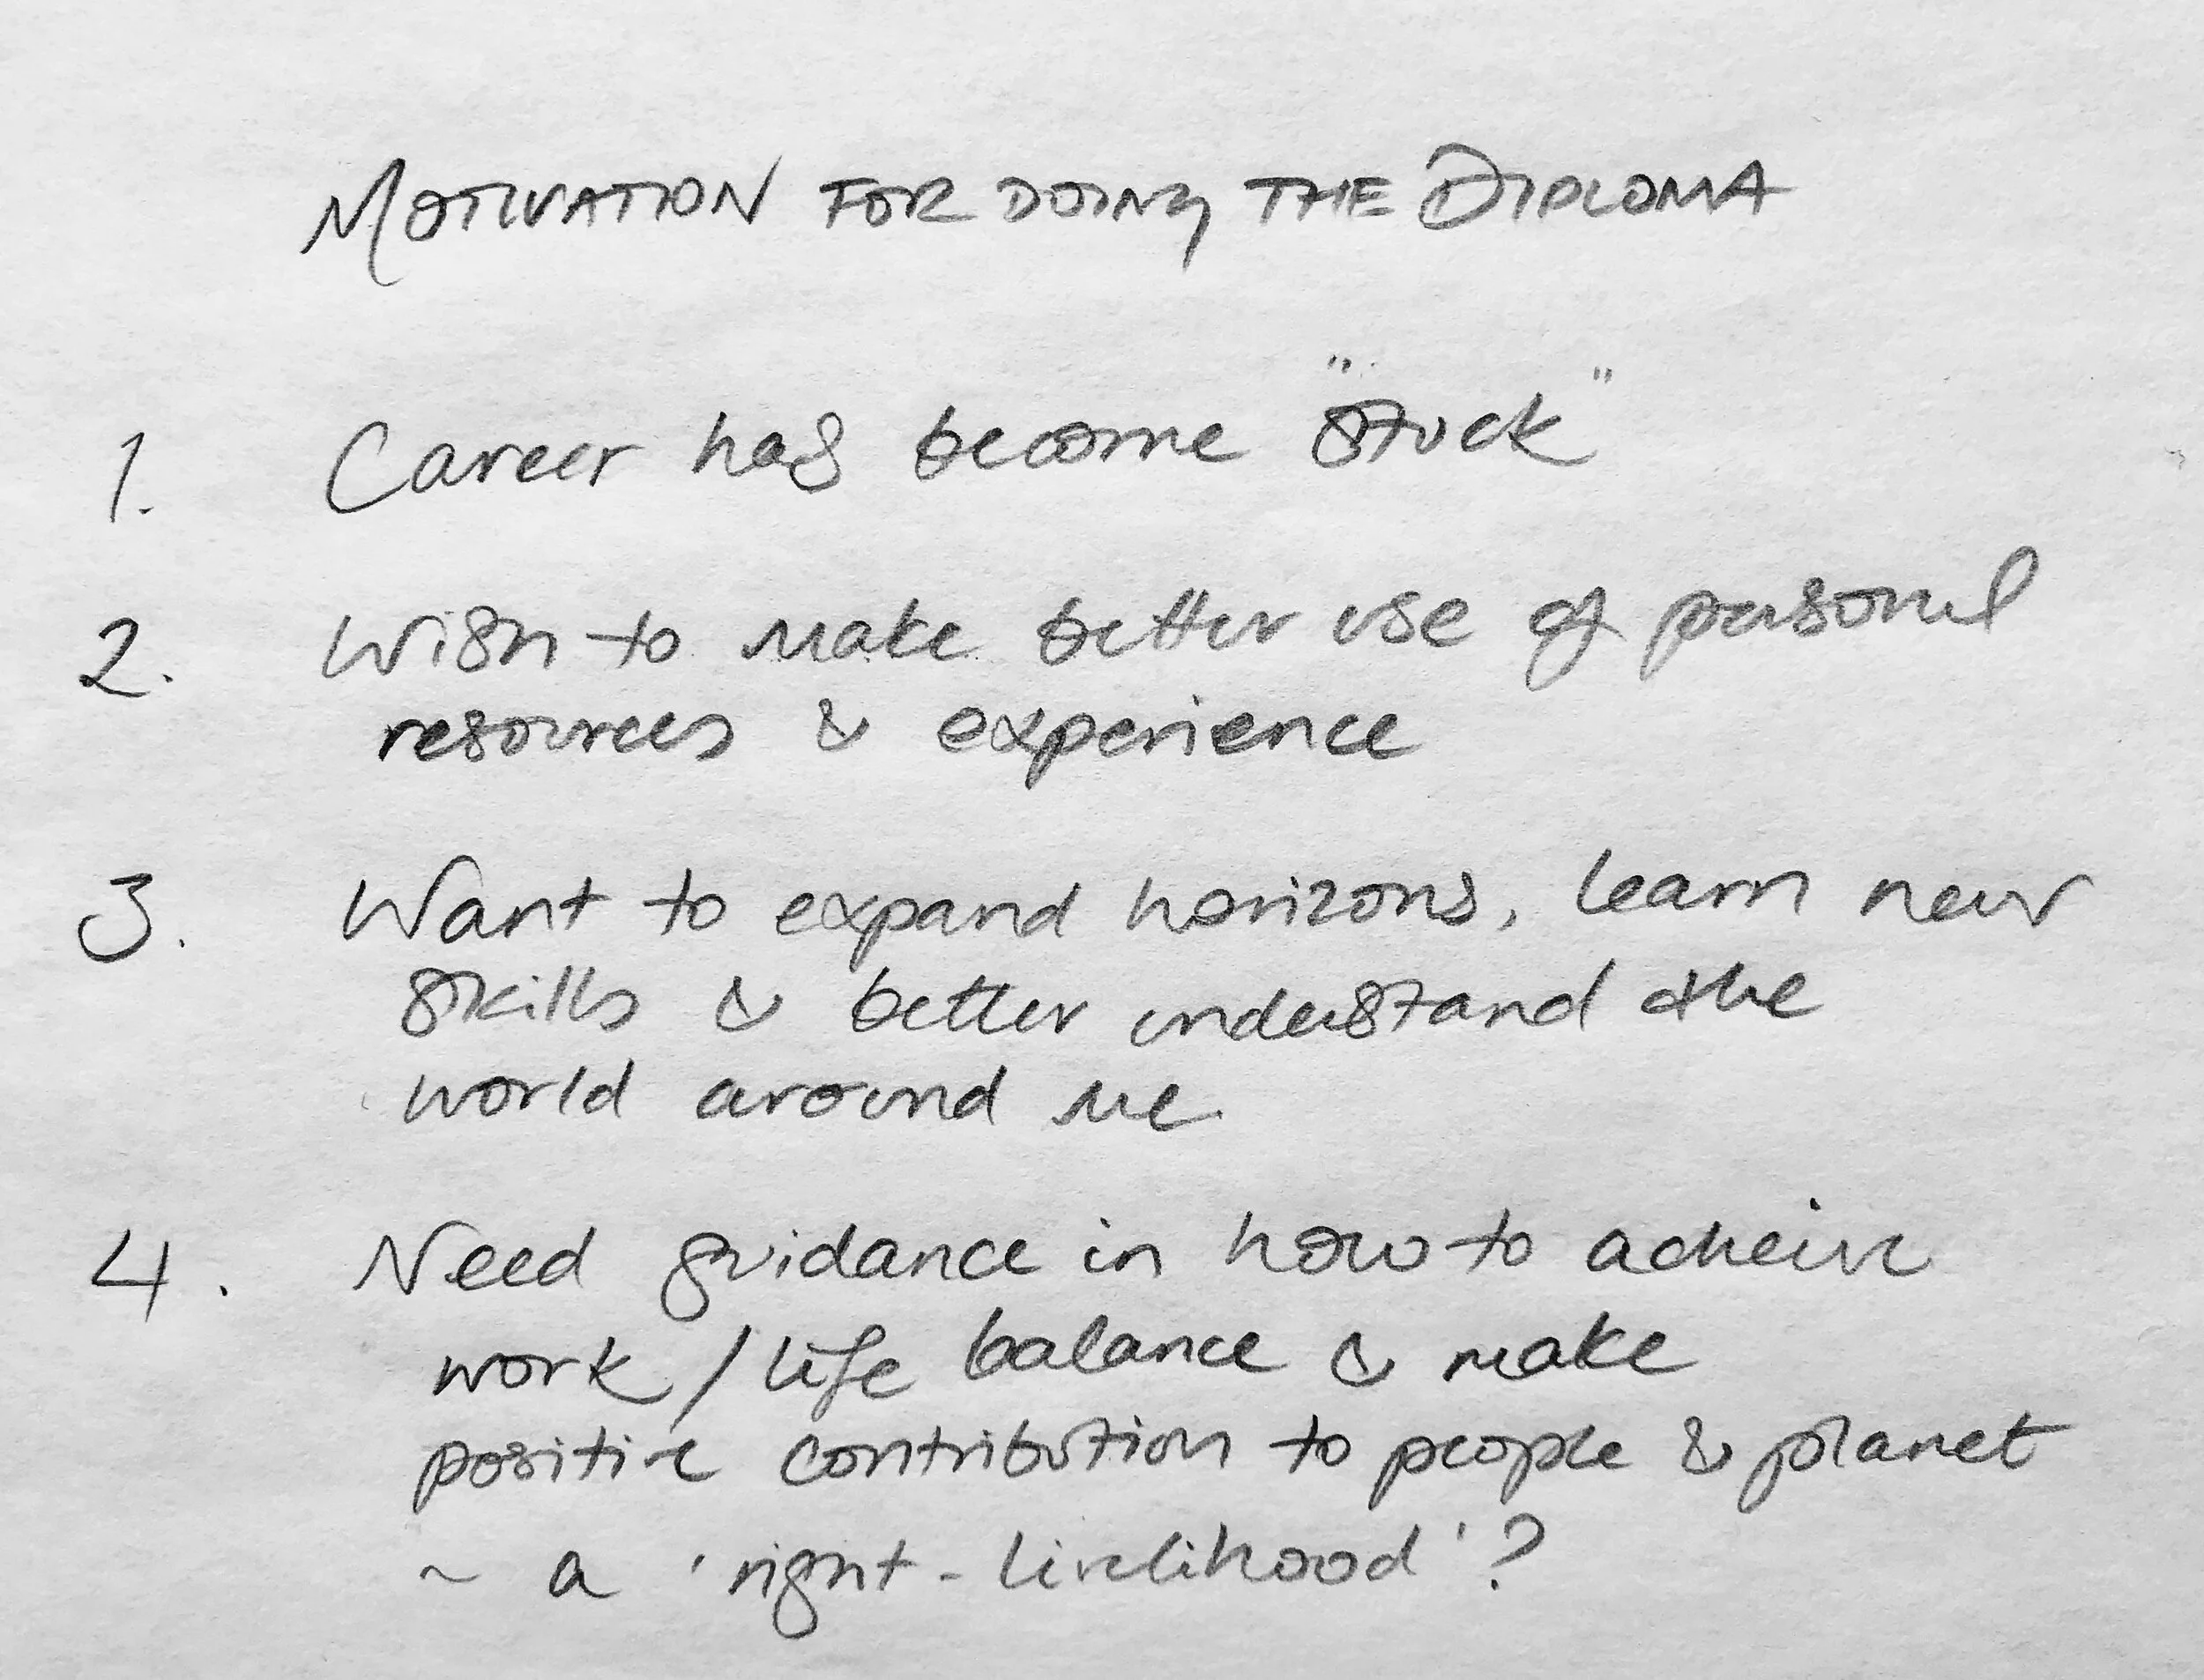 MOTIVATION FOR DOING THE DIPLOMA
1. Career has become "Stuck"
2. Wish to make better use of personal
resources & experience
3. Want to expand horizons, learn new
skills & better understand the
world around me
4. Need guidance in how to acheive
work / life balance & make
positive contribution to people & planet
~ a 'right-livelihood'?